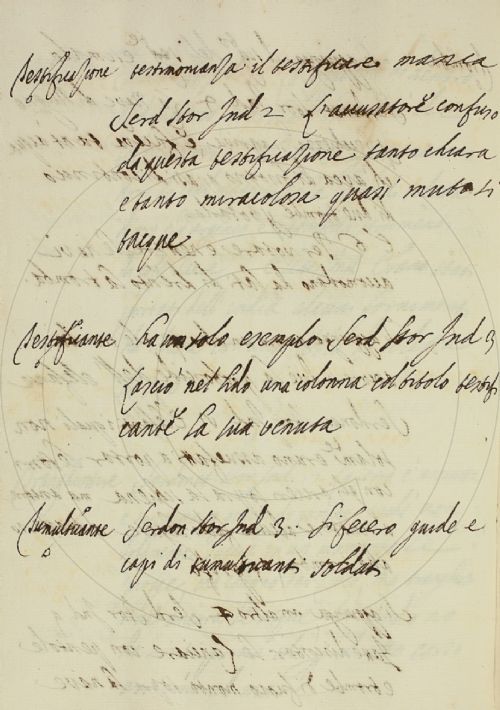 Testificazione testimonianza il testificare manca
Serd Stor Ind 2 L'accusatore confuso
da questa testificazione tanto chiara
e tanto miracolosa quasi muto si
tacque
Testificante ha un solo esempio Serd Stor Ind 3
Lasciò nel lido una colonna col titolo testifi
cante la sua venuta
Tumultuante Serdon Stor Ind 3. Si fecero guide e
capi di tumultuanti soldati